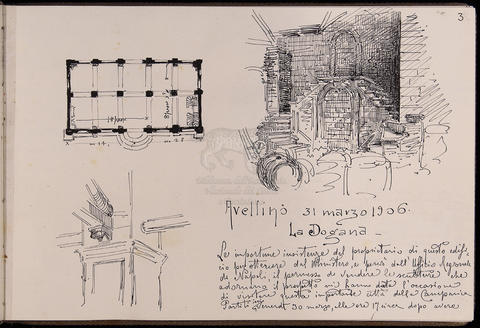 3
Avellino 31 marzo 1906.
La Dogana
Le importune insistenze del proprietario di questo edifi-
cio per ottenere dal Ministero, e perciò dall'Ufficio Regionale
di Napoli, il permesso di vendere le sculture che
adornano il prospetto mi hanno dato l'occasione
di visitare questa importante città della Campania
Partito Venerdì 30 marzo, alle ore 17, circa dopo avere